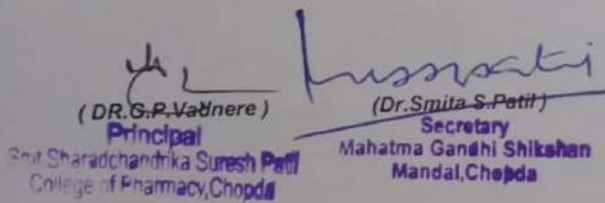 ( DR.G.P.Vadnere )
Principal
Smt Sharadchandrika Suresh Patil
College of Pharmacy,Chopda
(Dr.Smita S.Patil)
Secretary
Mahatma Gandhi Shikshan
Mandal,Chopda